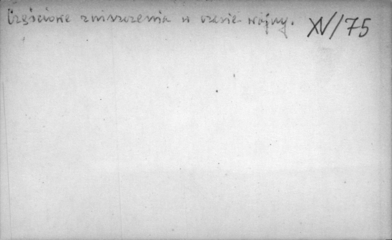 Częściowe zniszczenia w czasie wojny. XV/75